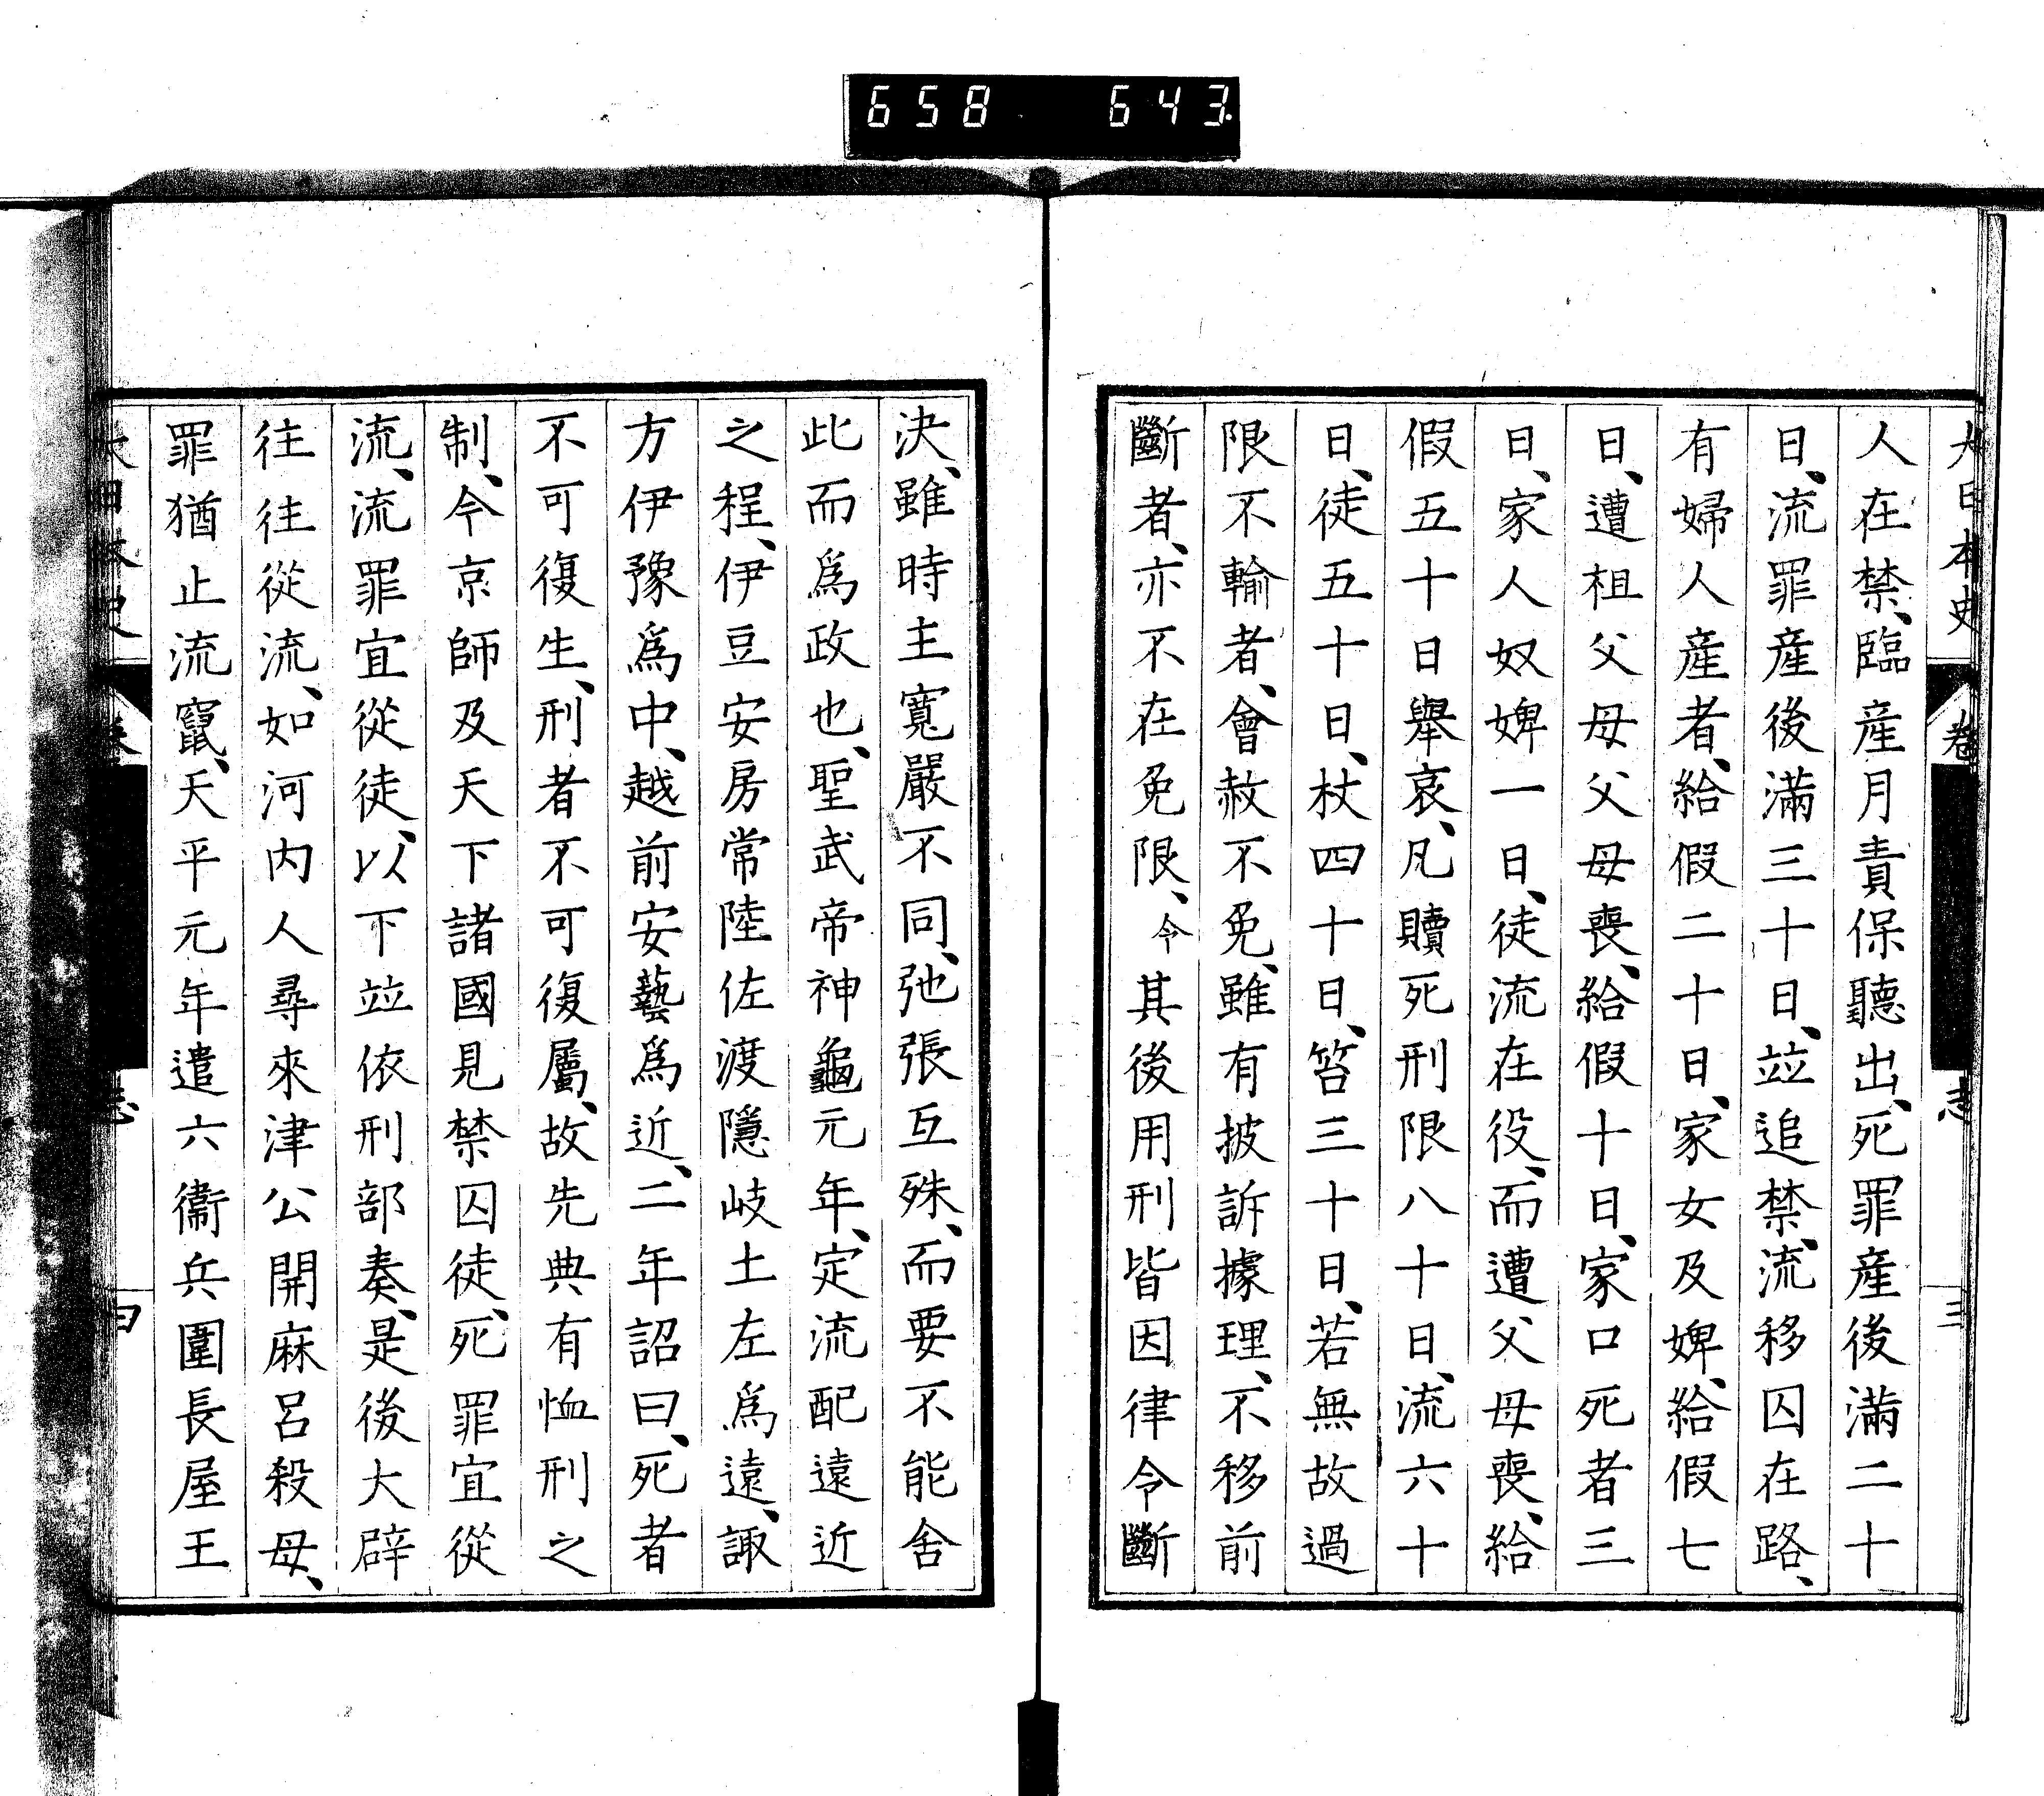 658 643
大日本史 卷 志 三
人在禁、臨産月責保聽出、死罪産後滿二十
日、流罪産後滿三十日、竝追禁、流移囚在路、
有婦人産者、給假二十日、家女及婢、給假七
日、遭祖父母父母喪、給假十日、家口死者三
日、家人奴婢一日、徒流在役、而遭父母喪、給
假五十日擧哀、凡贖死刑限八十日、流六十
日、徒五十日、杖四十日、笞三十日、若無故過
限不輸者、會赦不免、雖有披訴據理、不移前
斷者、亦不在免限、令其後用刑皆因律令斷
決、雖時主寬嚴不同、弛張互殊、而要不能舍
此而爲政也、聖武帝神龜元年、定流配遠近
之程、伊豆安房常陸佐渡隱岐土左爲遠、諏
方伊豫爲中、越前安藝爲近、二年詔曰、死者
不可復生、刑者不可復屬、故先典有恤刑之
制、今京師及天下諸國見禁囚徒、死罪宜從
流、流罪宜從徒、以下竝依刑部奏、是後大辟
往往從流、如河內人尋來津公開麻呂殺母、
罪猶止流竄、天平元年遣六衞兵圍長屋王